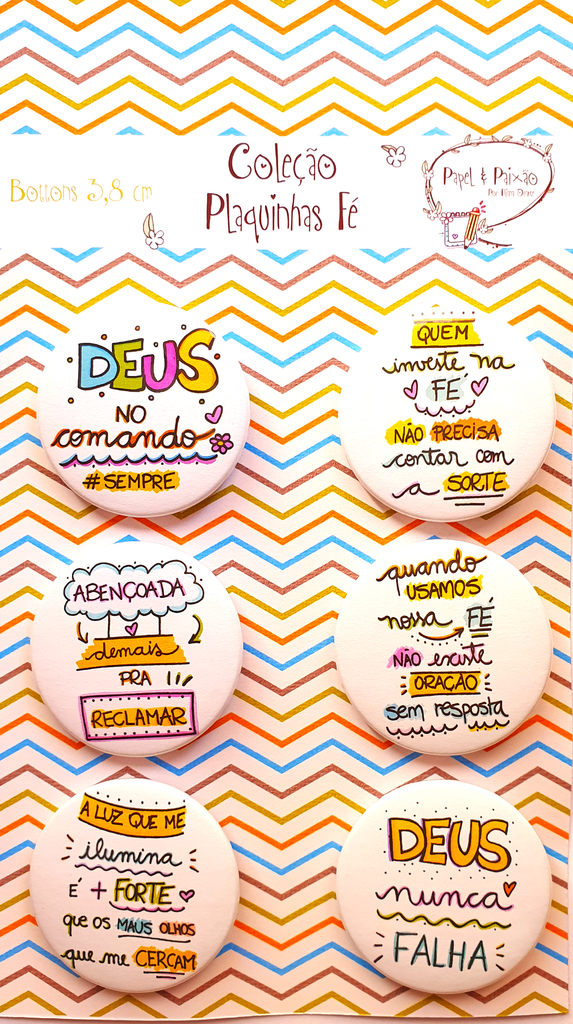 Coleção
Plaquinhas Fé
Bottons 3,8 cm
Papel & Paixão
DEUS
NO
comando
#SEMPRE
QUEM
investe na
FÉ
NÃO PRECISA
contar com
a SORTE
ABENÇOADA
demais
PRA
RECLAMAR
quando
USAMOS
nossa FÉ
NÃO existe
ORAÇÃO
sem resposta
A LUZ QUE ME
ilumina
É + FORTE
que os MAUS OLHOS
que me CERCAM
DEUS
nunca
FALHA